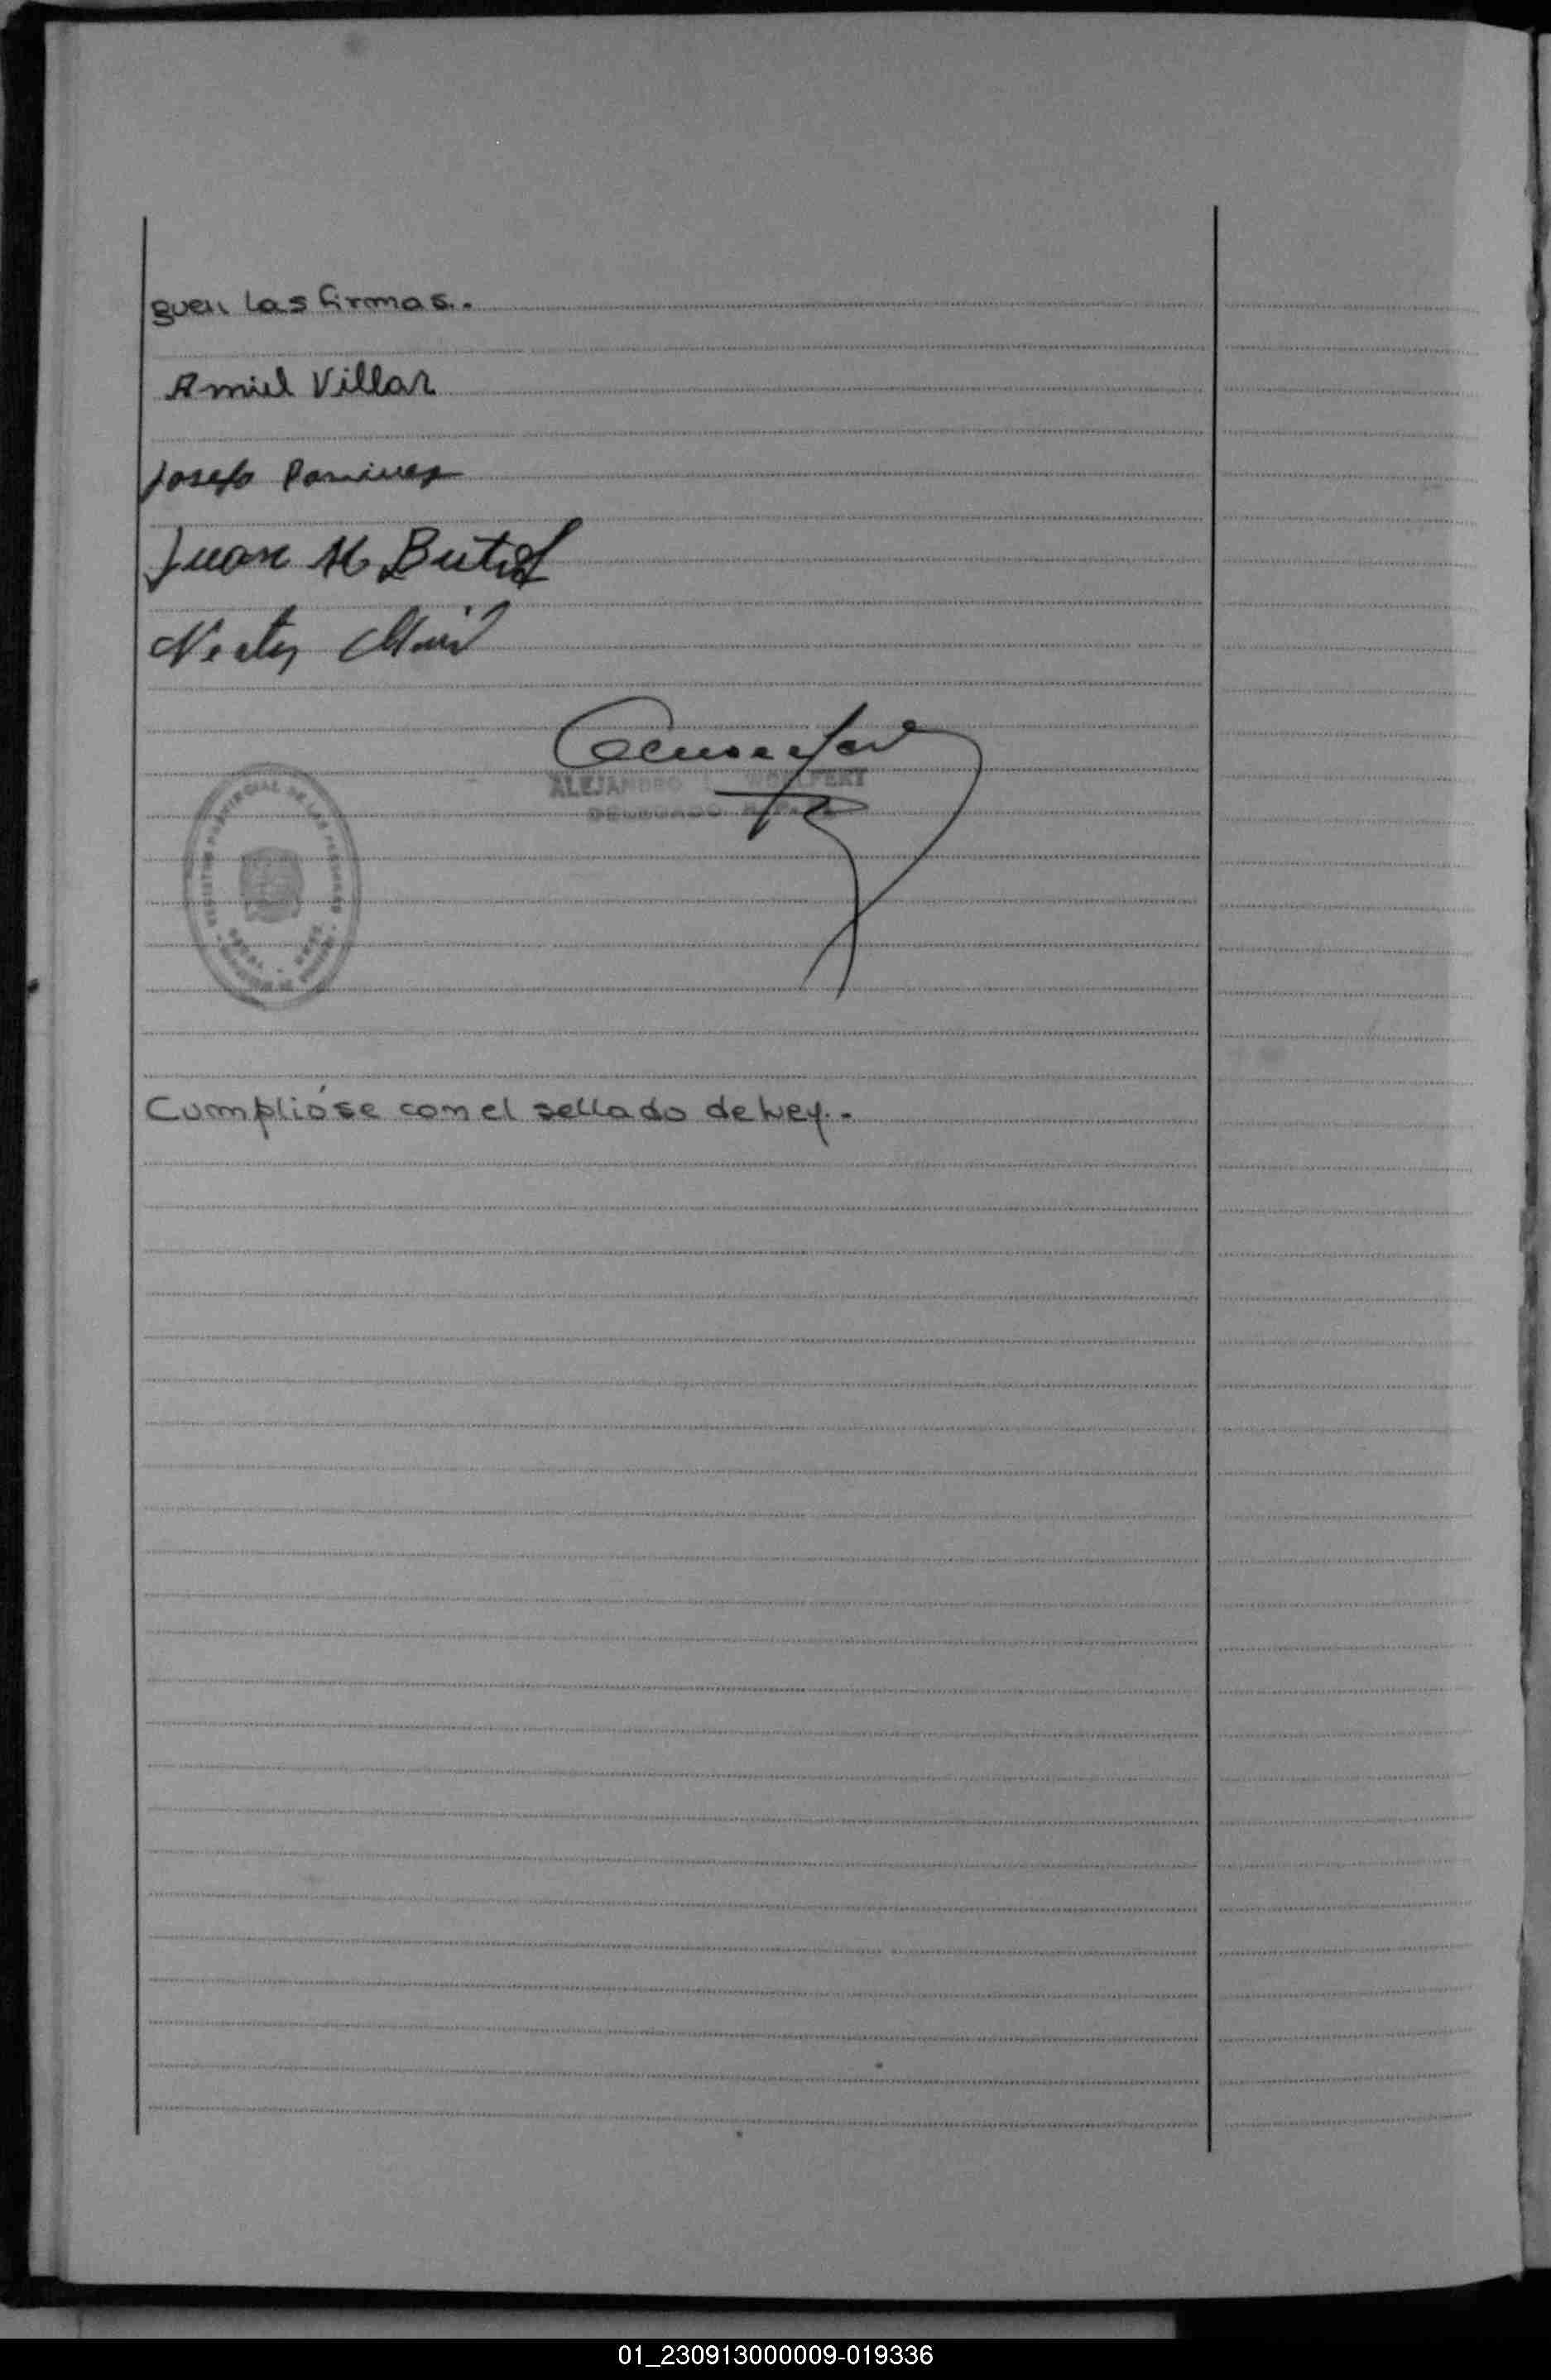 guen las firmas.-
Amiel Villar
Josefa Ramirez
Juan M Butof
ALEJANDRO WOLLFERT
DELEGADO
REGISTRO PROVINCIAL DE LAS PERSONAS
Cumplióse con el sellado de Ley.-
01_230913000009-019336